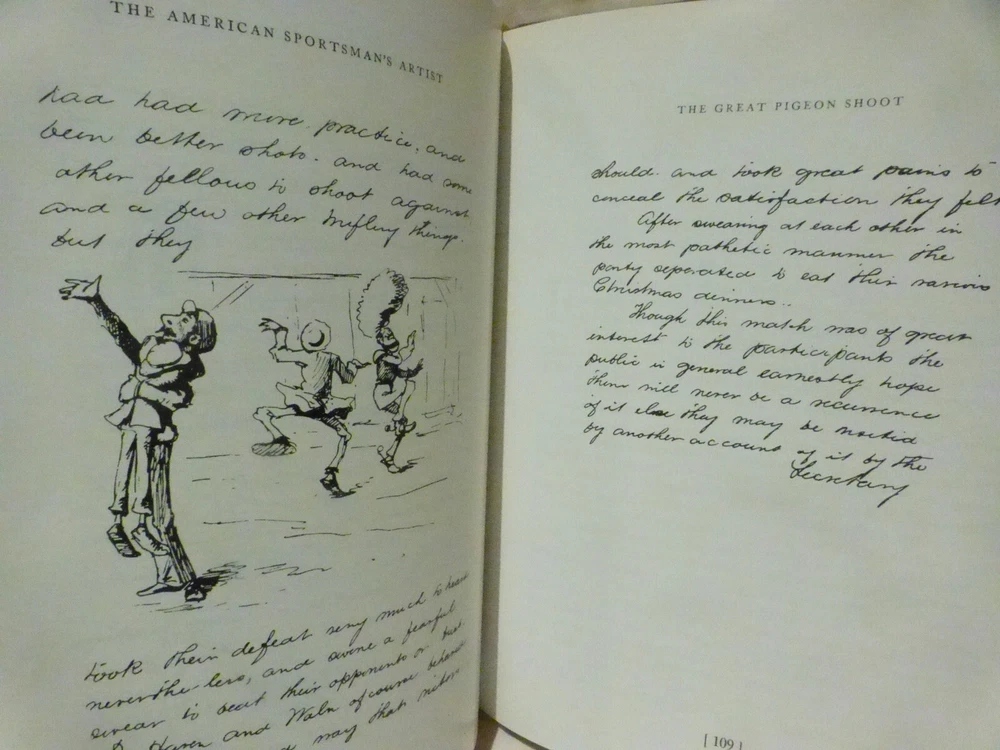 THE AMERICAN SPORTSMAN'S ARTIST
had had more practice, and
been better shots. and had some
other fellows to shoot against
and a few other trifling things.
but they
took their defeat very much to heart
nevertheless, and swore a fearful
swear to beat their opponents or bust
Haven and Waln of course behaved
may that victors
THE GREAT PIGEON SHOOT
should. and took great pains to
conceal the satisfaction they felt
After swearing at each other in
the most pathetic manner the
party seperated to eat their various
Christmas dinners..
Though this match was of great
interest to the participants the
public in general earnestly hope
there will never be a recurrence
of it else they may be visited
by another account of it by the
Secretary
[ 109 ]